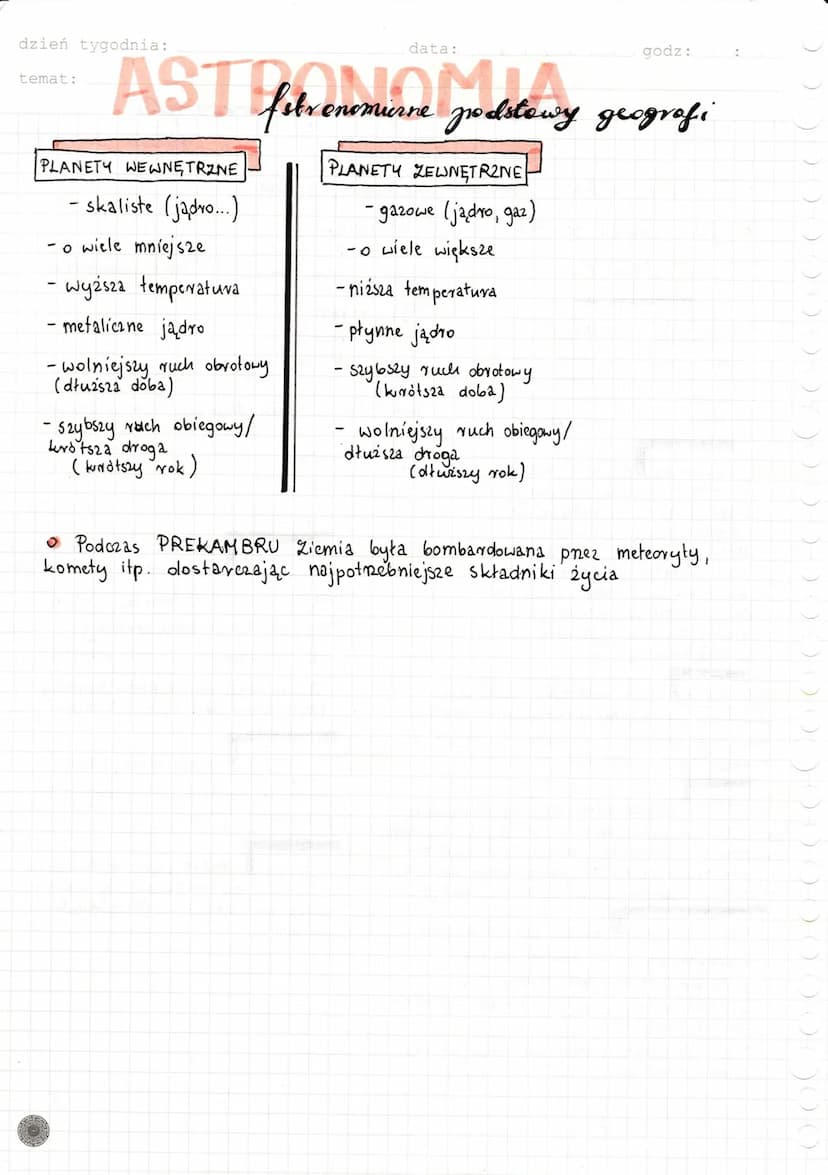 dzień tygodnia: data: godz: :
temat:
ASTRONOMIA
Astronomiczne podstawy geografi
PLANETY WEWNĘTRZNE
- skaliste (jądro...)
- o wiele mniejsze
- wyższa temperatura
- metaliczne jądro
- wolniejszy ruch obrotowy
(dłuższa doba)
- szybszy ruch obiegowy/
krótsza droga
(krótszy rok)
PLANETY ZEWNĘTRZNE
- gazowe (jądro, gaz)
- o wiele większe
- niższa temperatura
- płynne jądro
- szybszy ruch obrotowy
(krótsza doba)
- wolniejszy ruch obiegowy/
dłuższa droga
(dłuższy rok)
Podczas PREKAMBRU Ziemia była bombardowana przez meteoryty,
komety itp. dostarczając najpotrzebniejsze składniki życia